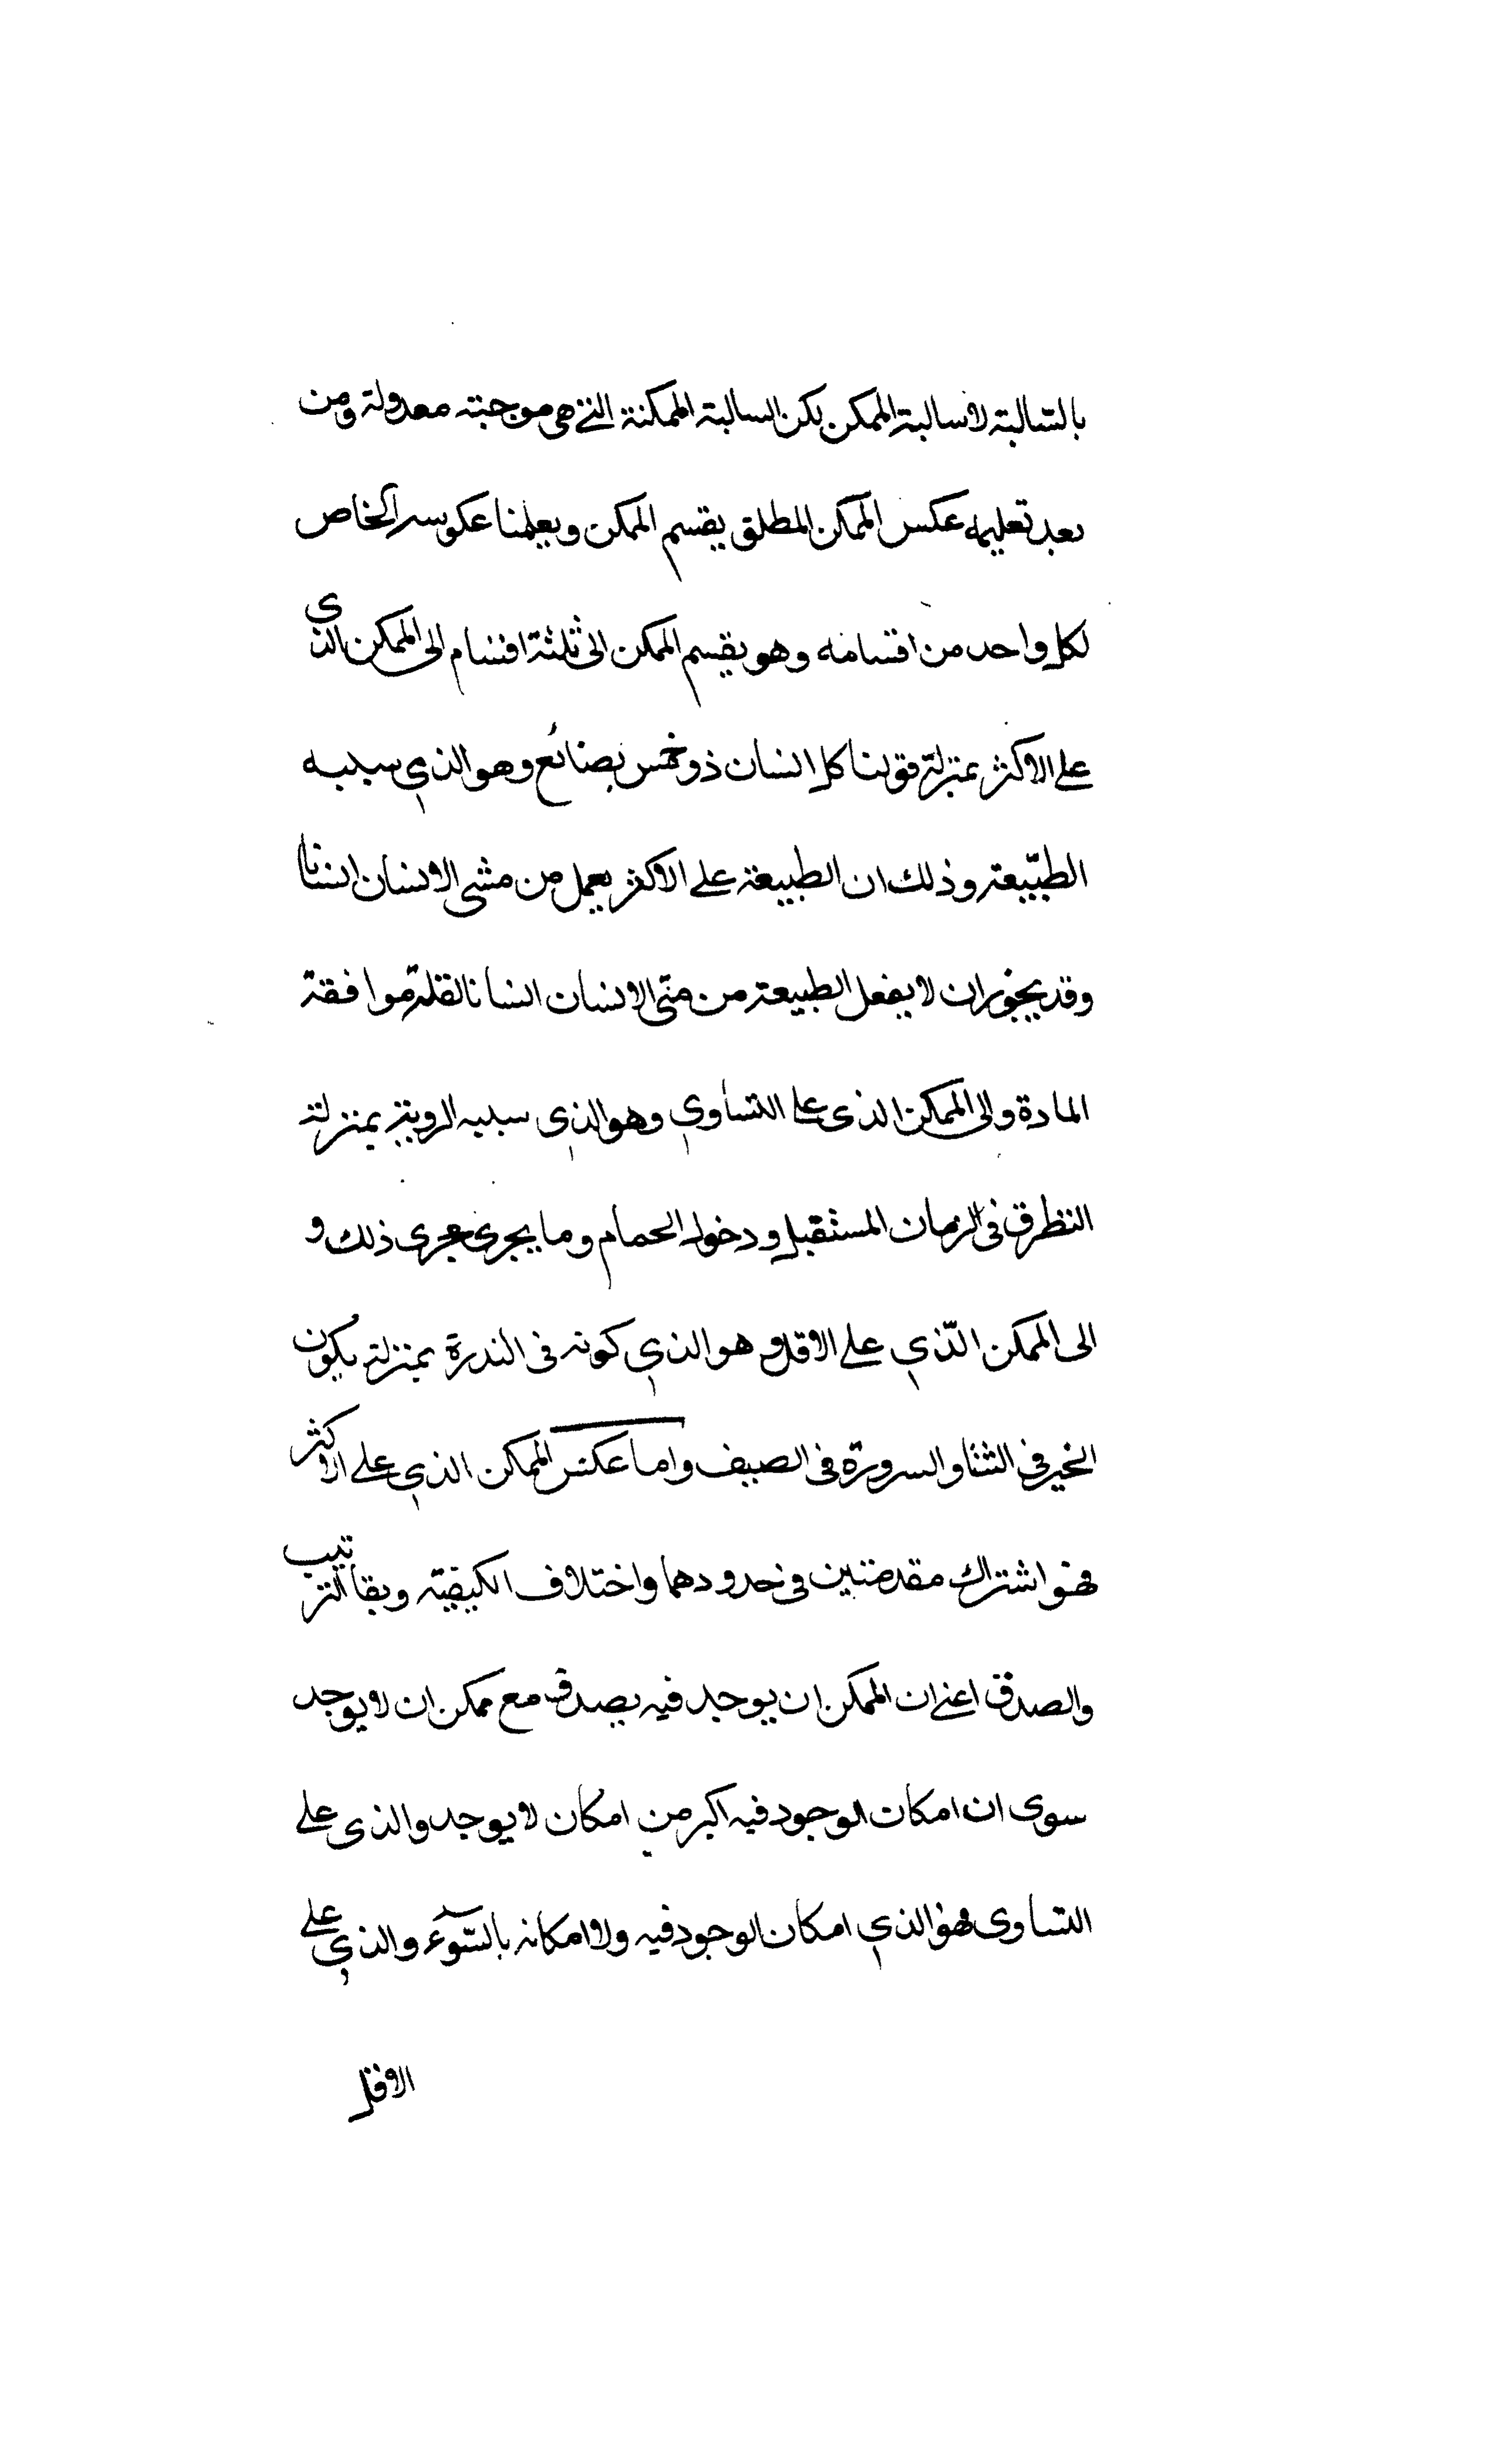 بالسالبة لا سالبة الممكن لكن السالبة الممكنة التي هي موجبته معدولة ومن
بعد تعليمه عكس الممكن المطلق يقسم الممكن ويعلمنا عكوسه الخاص
لكل واحد من اقسامه وهو يقسم الممكن الى ثلثة اقسام الى الممكن الذي
على الاكثر بمنزلة قولنا كل انسان ذو خمس بصنائع وهو الذي سببه
الطبيعة وذلك ان الطبيعة على الاكثر يعمل من مشى الانسان انسانا
وقد يجوز ان لا يفعل الطبيعة من منى الانسان انسانا لقلة موافقة
المادة والى الممكن الذى على التساوي وهو الذي سببه الروية بمنزلة
النظر فى الزمان المستقبل ودخول الحمام وما يجرى مجرى ذلك و
الى الممكن الذي على الاقل و هو الذي كونه فى الندرة بمنزلة يكون
الخير في الشتا والسرورة فى الصيف واما عكس الممكن الذي على الاكثر
فهو اشتراك مقدمتين فى حدودهما واختلاف الكيفية وبقا الترتيب
والصدق اعنى ان الممكن ان يوجد فيه يصدق مع ممكن ان لا يوجد
سوى ان امكان الوجود فيه اكبر من امكان لا يوجد والذى على
التساوى فهو الذي امكان الوجود فيه ولا امكانه بالسوء والذي على
الاقل